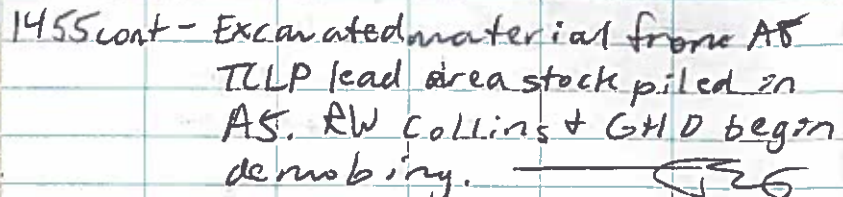 1455cont - Excavated material from A5
TCLP lead area stock piled in
A5. RW Collins & GHD begin
demobing.